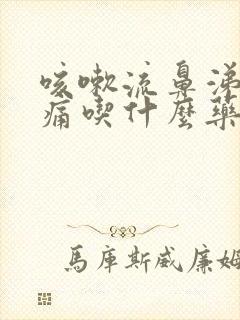 咳嗽流鼻涕
痛喫什麼藥
馬庫斯威廉姆